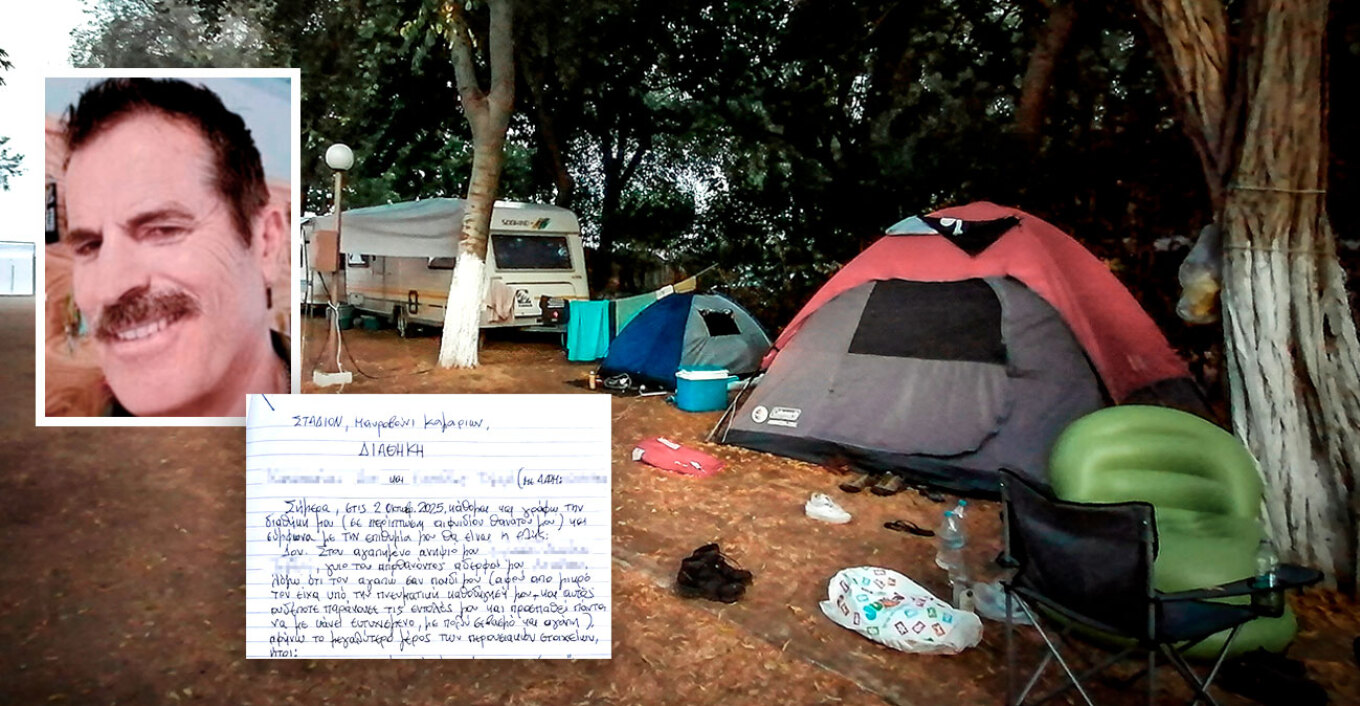 ΣΤΑΔΙΟΝ, Μαυροβούνι Καμαριων,
ΔΙΑΘΗΚΗ
και (με ΑΦΜ:
Σήμερα, στις 2 Οκτωβ. 2025, κάθομαι και γράφω την
διαθήκη μου (σε περίπτωση αιφνιδίου θανάτου μου) και
σύμφωνα με την επιθυμία μου θα είναι η εξής:
1ον. Στον αγαπημένο ανηψιό μου
, γυιο του αποθανόντος αδερφού μου
λόγω ότι τον αγαπώ σαν παιδί μου (αφού από μικρό
τον είχα υπό την πνευματική καθοδήγησή μου, και αυτός
ουδέποτε παράκουσε τις εντολές μου και προσπαθεί πάντα
να με κάνει ευτυχισμένο, με πολύ σεβασμό και αγάπη),
αφήνω το μεγαλύτερο μέρος των περουσιακών στοιχείων,
ήτοι:
Coleman